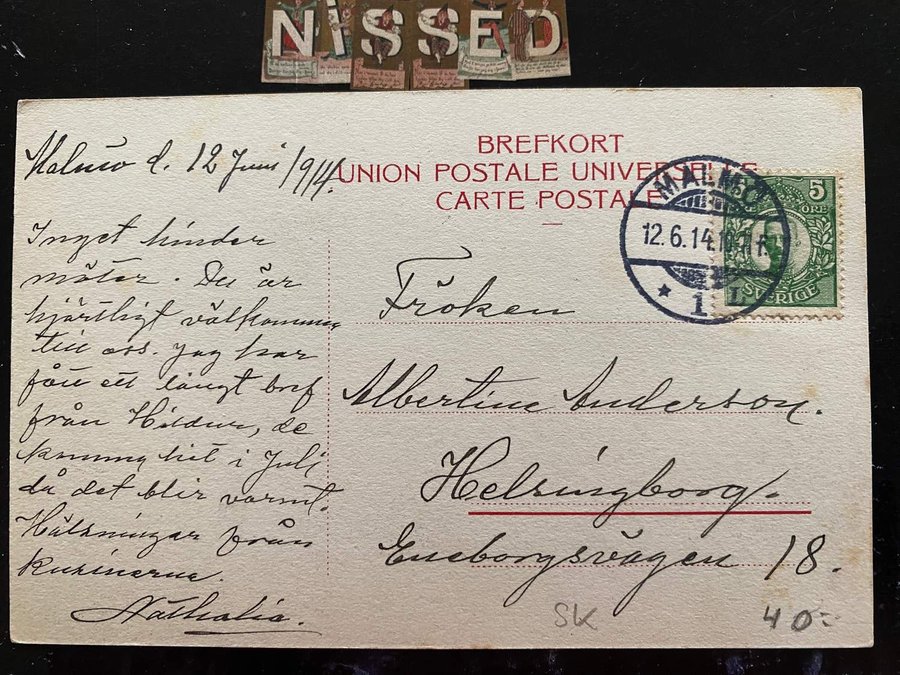 NISSED
BREFKORT
UNION POSTALE UNIVERSELLE
CARTE POSTALE
Malmö d. 12 Juni 1914.
MALMÖ
12.6.14.
1
5
ÖRE
SVERIGE
Inget hinder
möter. Du är
hjärtligt välkommen
till oss. Jag har
fått ett långt bref
från Hildur, de
komma hit i Juli
då det blir varmt.
Hälsningar från
kusinerna.
Nathalia.
Fröken
Albertine Anderson.
Helsingborg.
Eneborgsvägen 18.
SK
40:-